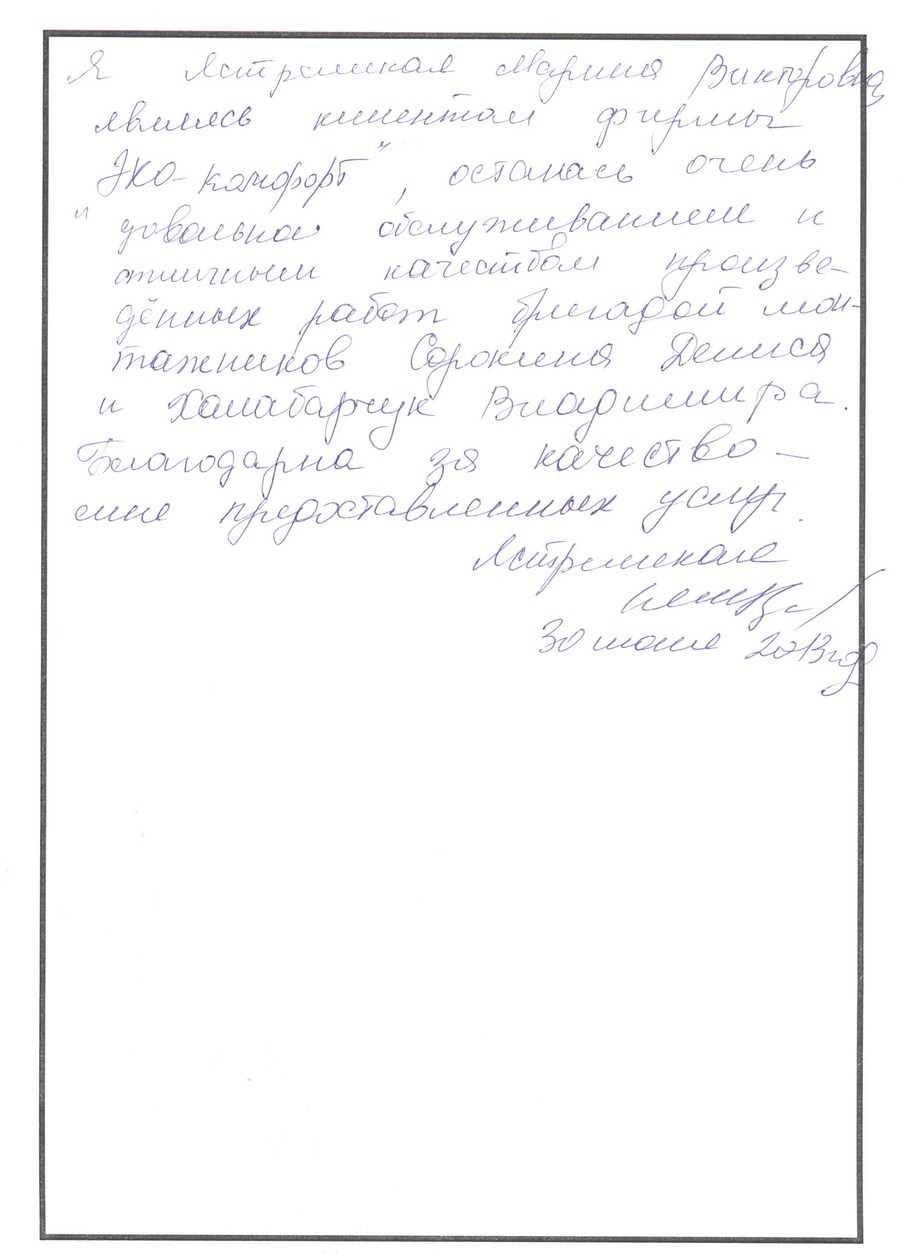 Я Ястремская Марина Викторовна
являюсь клиентом фирмы
"Эко-комфорт", осталась очень
довольна обслуживанием и
отличным качеством произве-
дённых работ бригадой мон-
тажников Сорокина Дениса
и Халабарчук Владимира.
Благодарна за качество
мне предоставленных услуг.
Ястремская
30 июня 2013 год